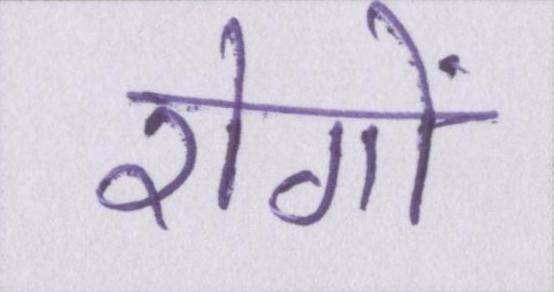 रोगों